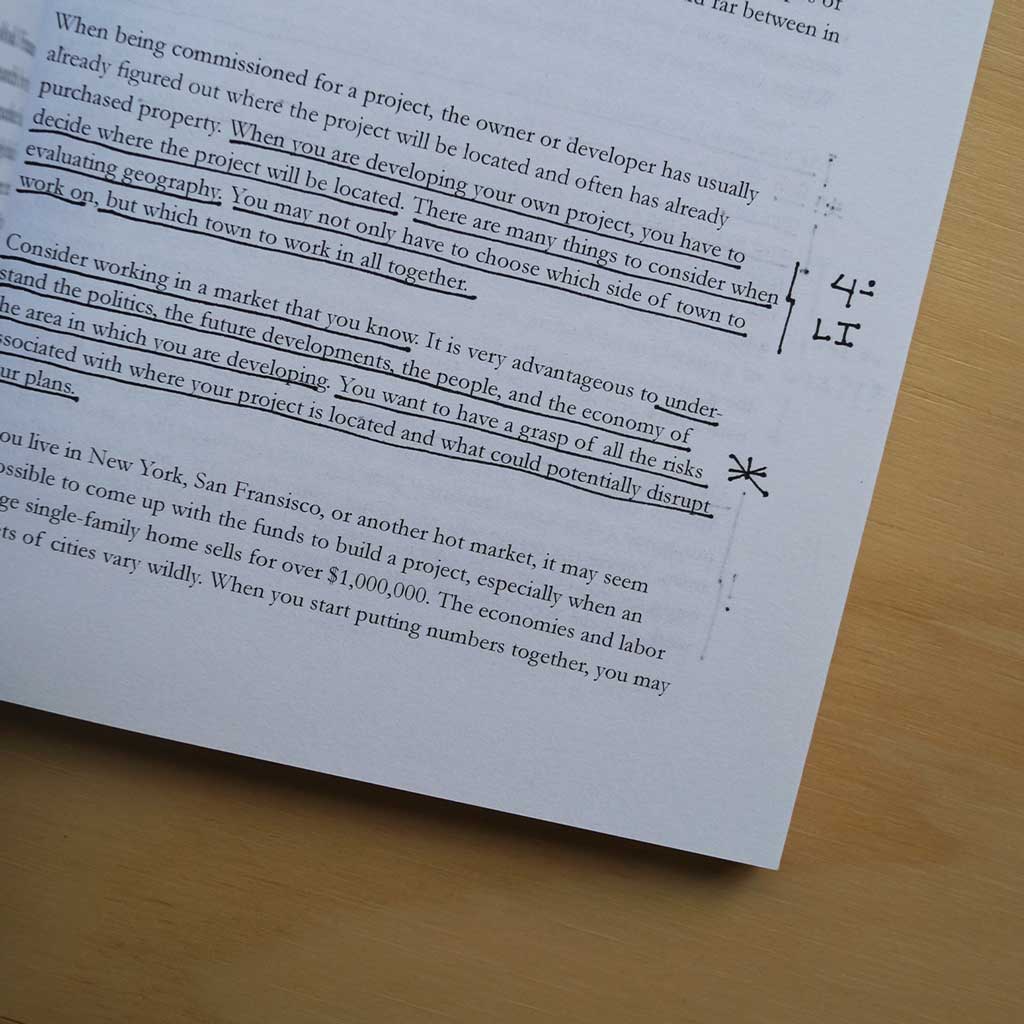 far between in
When being commissioned for a project, the owner or developer has usually
already figured out where the project will be located and often has already
purchased property. When you are developing your own project, you have to
decide where the project will be located. There are many things to consider when
evaluating geography. You may not only have to choose which side of town to
work on, but which town to work in all together.
Consider working in a market that you know. It is very advantageous to under-
stand the politics, the future developments, the people, and the economy of
he area in which you are developing. You want to have a grasp of all the risks
ssociated with where your project is located and what could potentially disrupt
ur plans.
ou live in New York, San Fransisco, or another hot market, it may seem
ossible to come up with the funds to build a project, especially when an
ge single-family home sells for over $1,000,000. The economies and labor
ts of cities vary wildly. When you start putting numbers together, you may
4:
LI